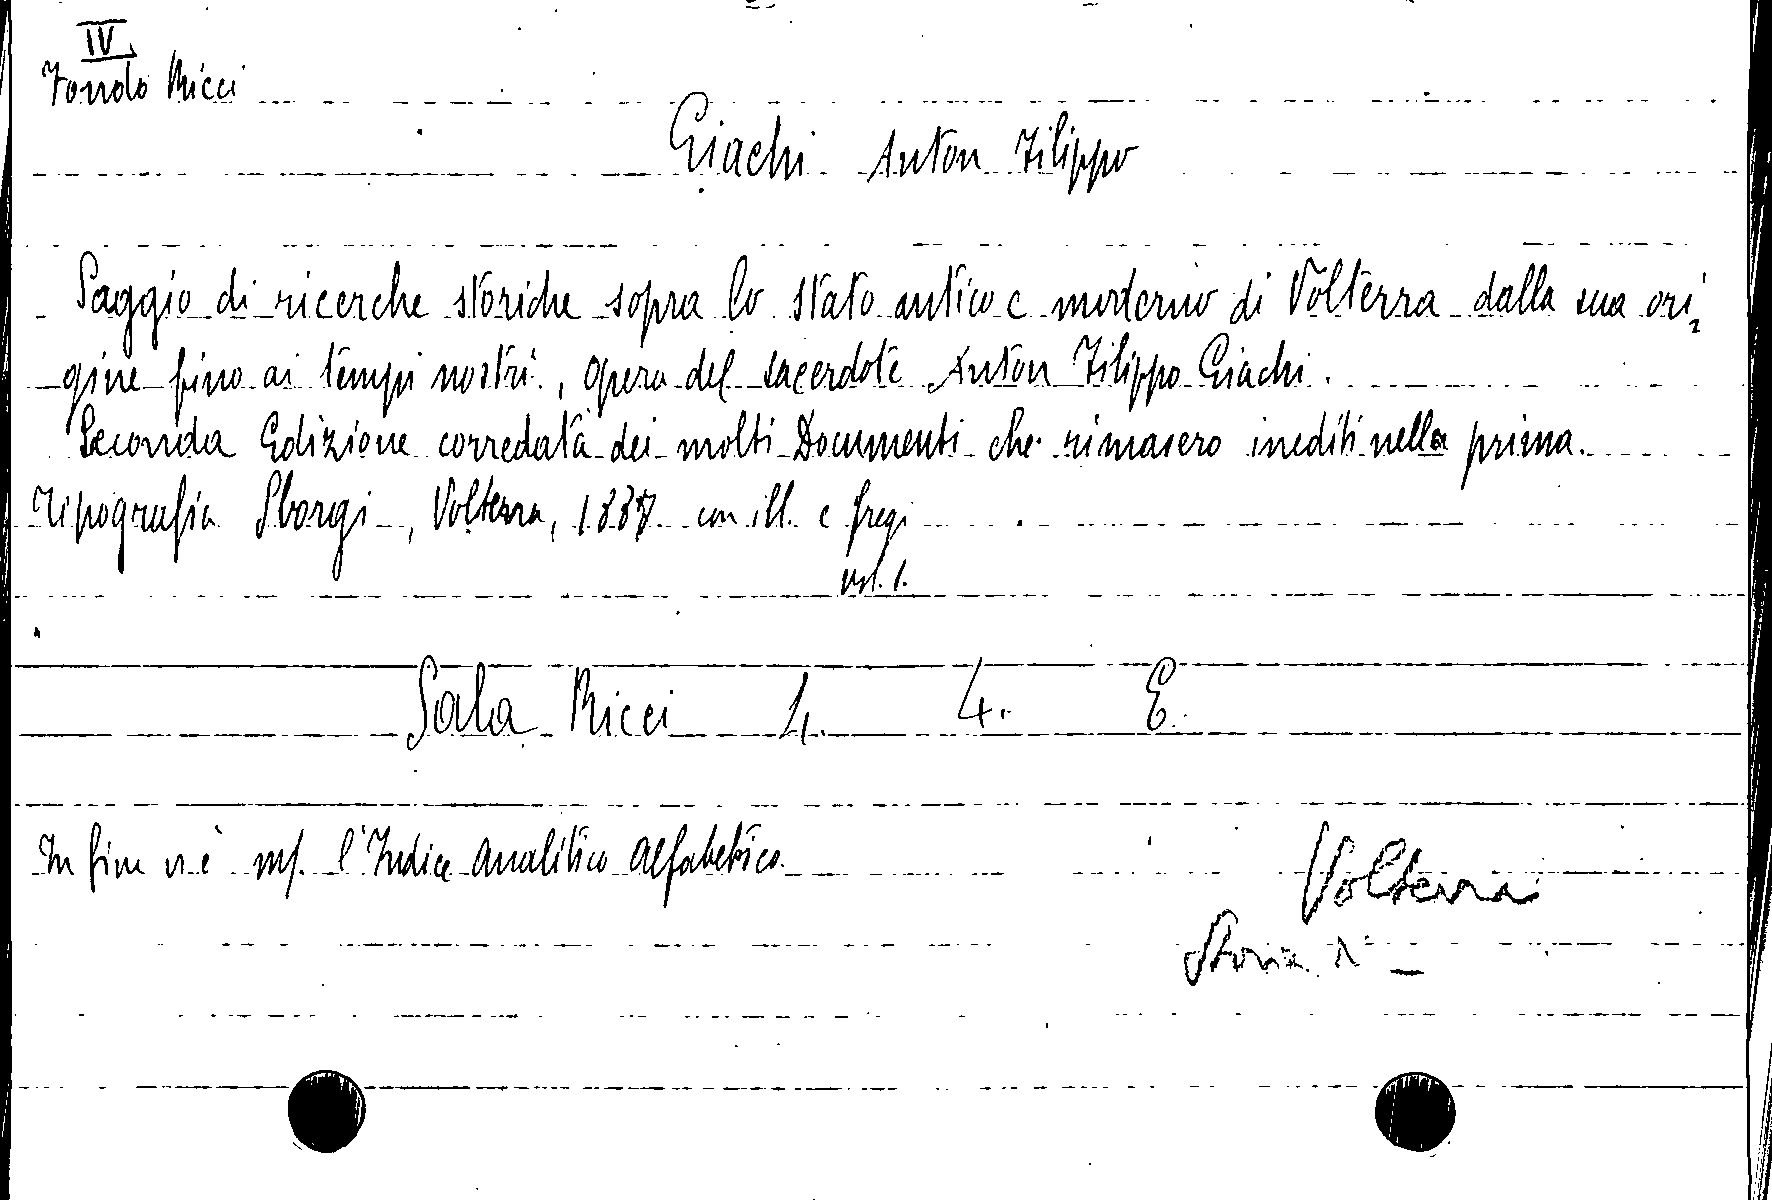 IV
Fondo Ricci
Giachi Anton Filippo
Saggio di ricerche storiche sopra lo stato antico e moderno di Volterra dalla sua ori=
gine fino ai tempi nostri., opera del sacerdote Anton Filippo Giachi.
Seconda Edizione corredata dei molti Documenti che rimasero inediti nella prima.
Tipografia Sborgi, Volterra, 1887 con ill. e fregi
vol. 1.
Sala Ricci 4. 4. E.
In fine vi è ms. l'Indice Analitico Alfabetico.
Volterra
Storia